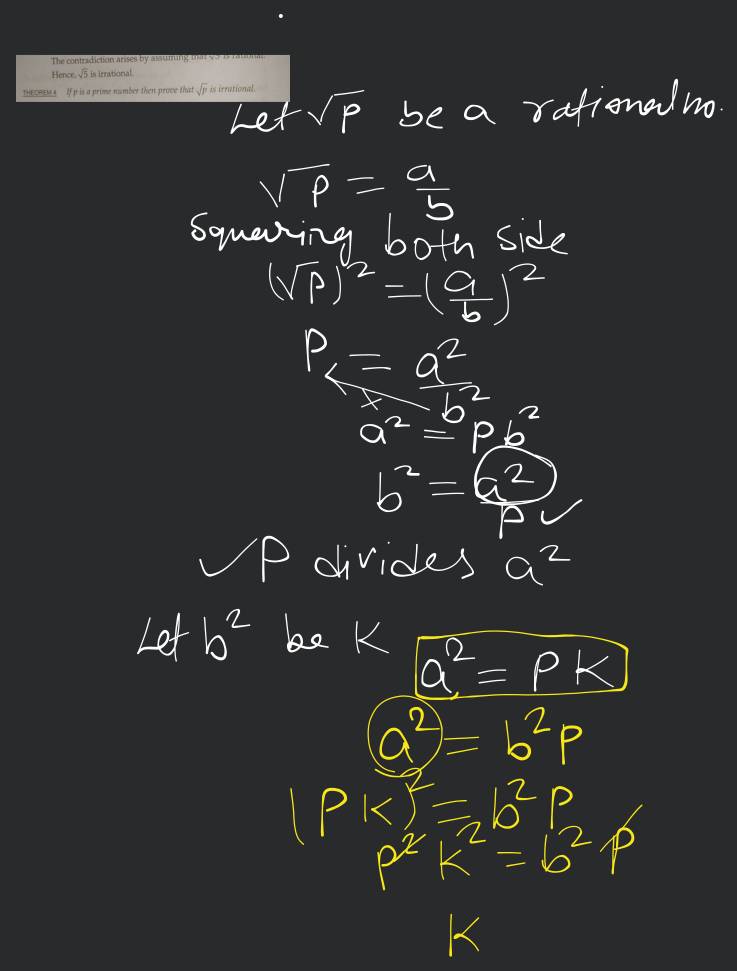 The contradiction arises by assuming that √5 is rational.
Hence, √5 is irrational.
THEOREM 4 If p is a prime number then prove that √p is irrational.
Let √p be a rational no.
√p = a/b
Squaring both side
(√p)² = (a/b)²
P = a²/b²
a² = pb²
b² = a²/p ✓
✓P divides a²
Let b² be K
a² = PK
a² = b²p
(PK)² = b²p
p²k² = b²p
K